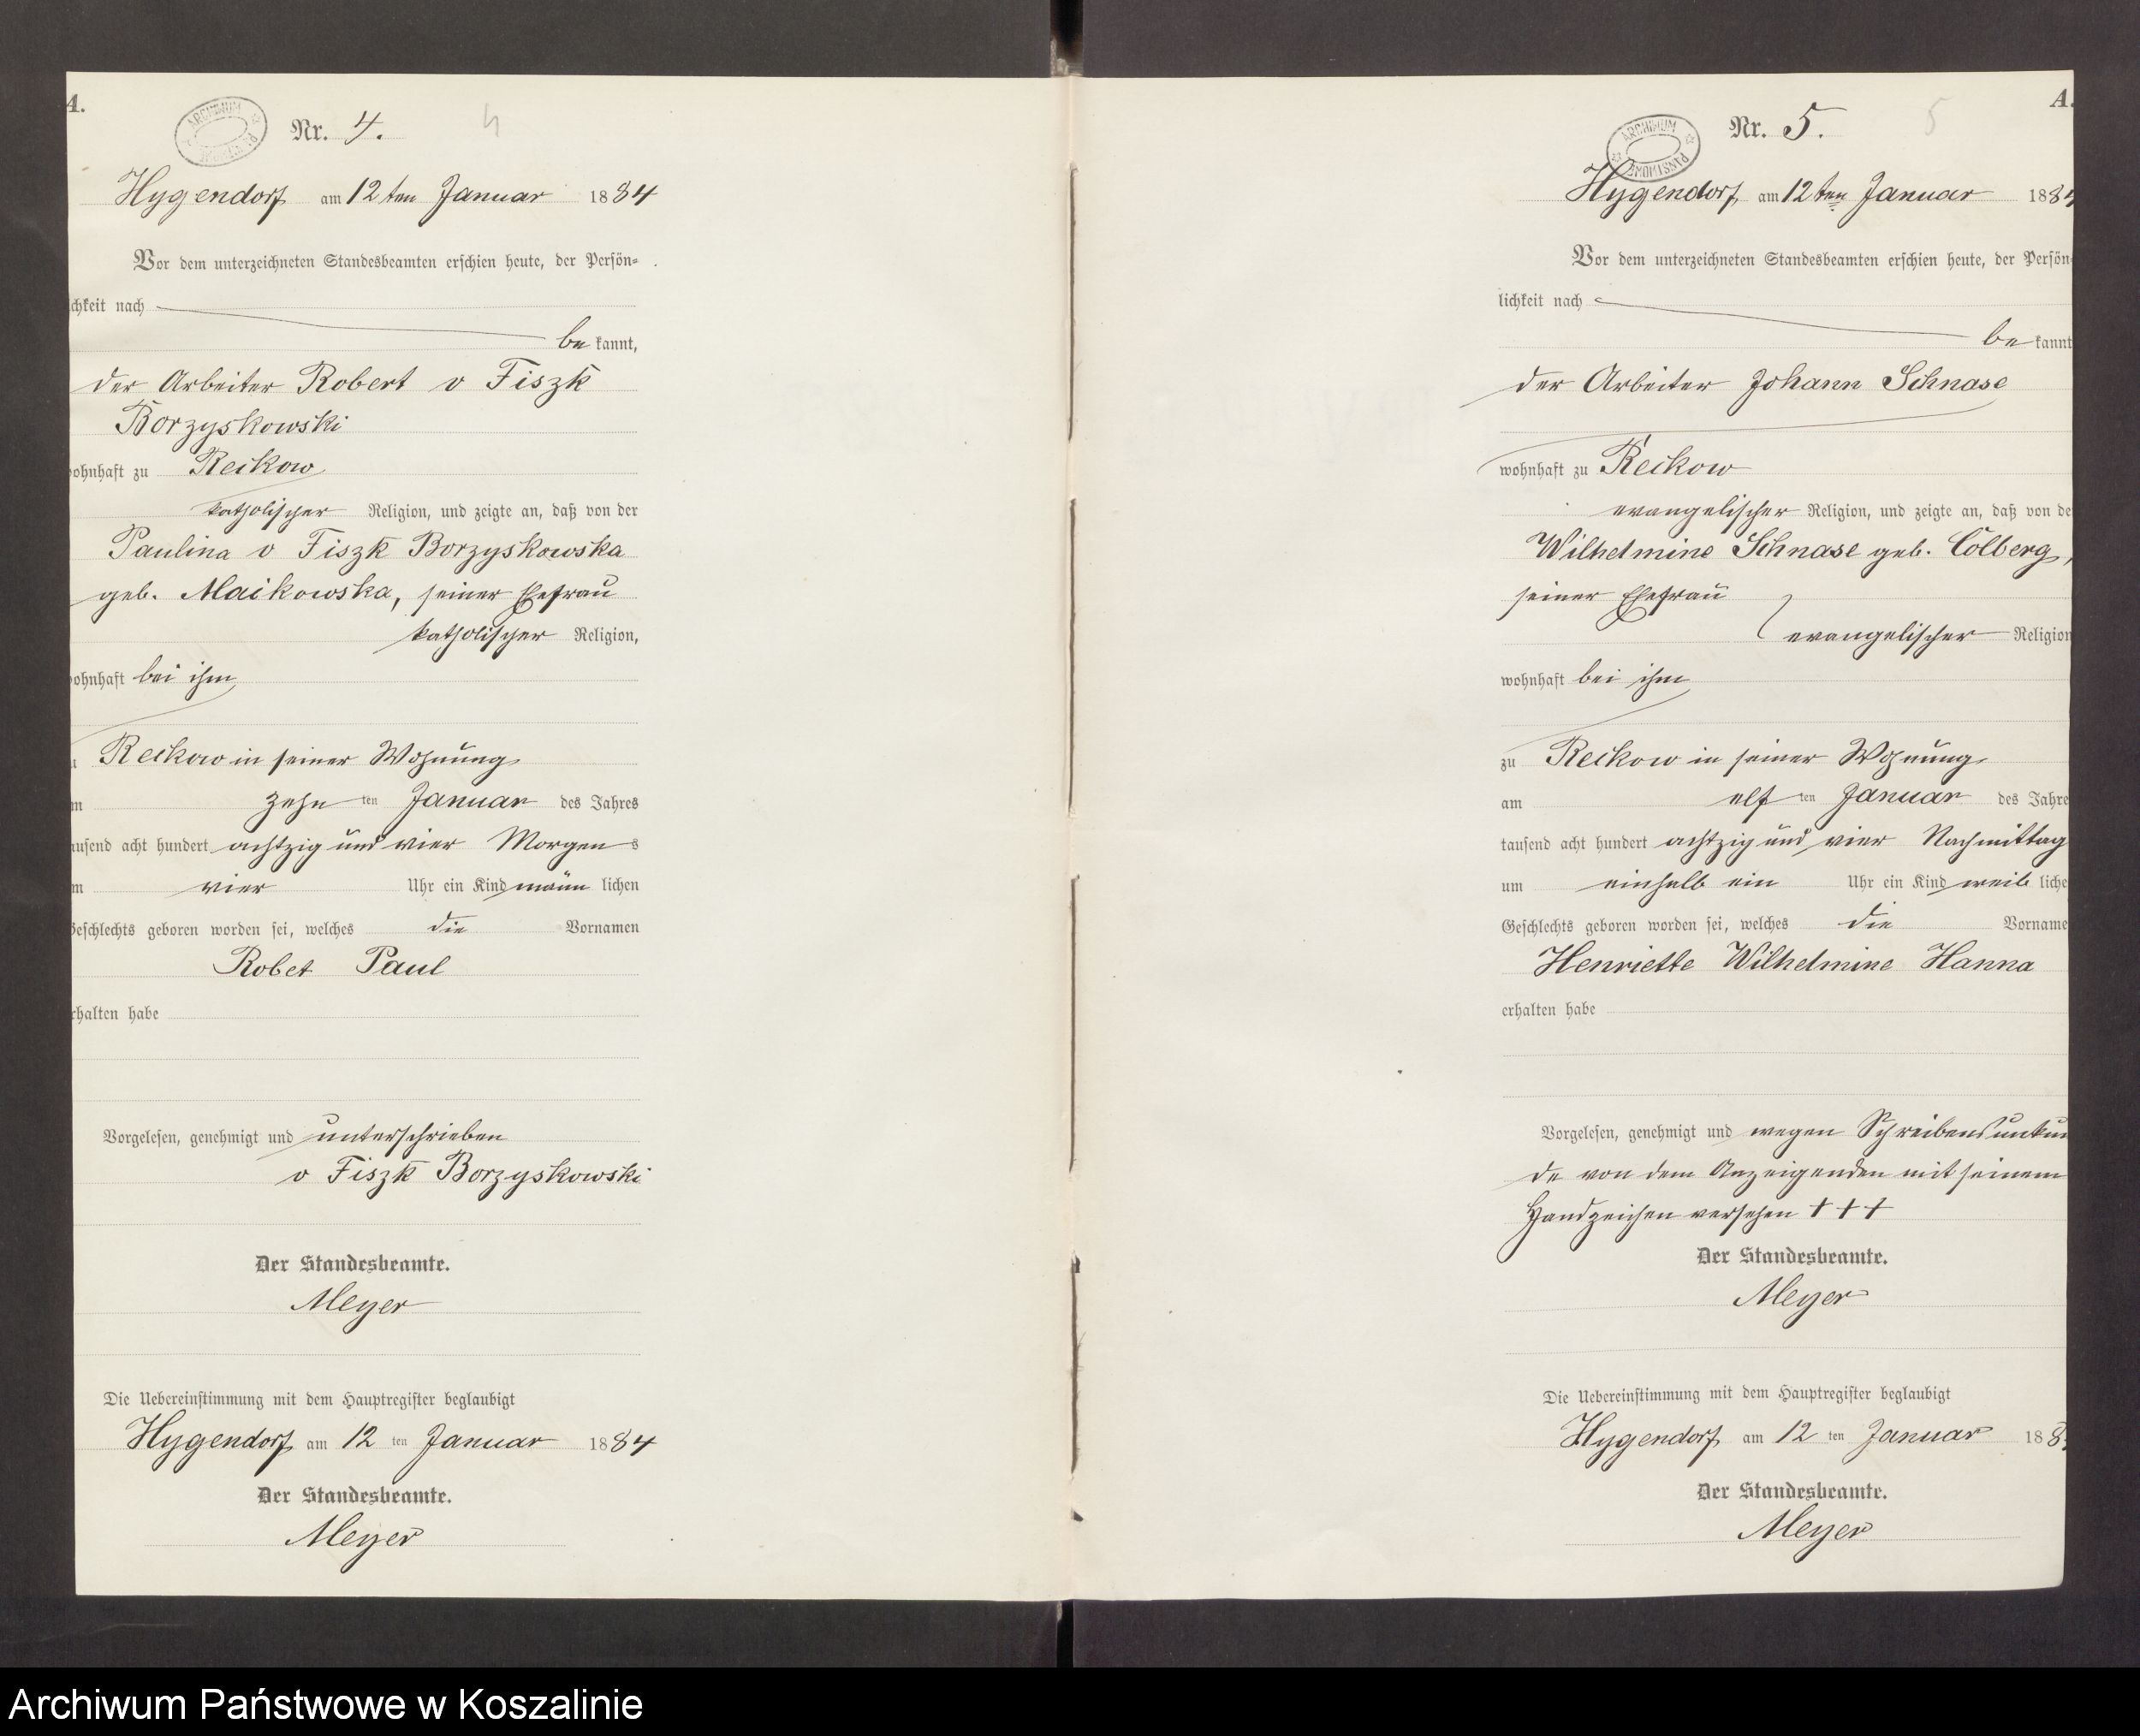 A.
ARCHIWUM PAŃSTWOWE
Nr. 4. 4
Hygendorf am 12 ten Januar 1884
Vor dem unterzeichneten Standesbeamten erschien heute, der Persön-
chkeit nach
be kannt,
der Arbeiter Robert v Fiszk
Borzyskowski
ohnhaft zu Reckow
katholischer Religion, und zeigte an, daß von der
Paulina v Fiszk Borzyskowska
geb. Maikowska, seiner Ehefrau
katholischer Religion,
ohnhaft bei ihm
Reckow in seiner Wohnung
m zehn ten Januar des Jahres
ausend acht hundert achtzig und vier Morgens
m vier Uhr ein Kind männ lichen
Geschlechts geboren worden sei, welches die Vornamen
Robet Paul
rhalten habe
Vorgelesen, genehmigt und unterschrieben
v Fiszk Borzyskowski
Der Standesbeamte.
Meyer
Die Uebereinstimmung mit dem Hauptregister beglaubigt
Hygendorf am 12 ten Januar 1884
Der Standesbeamte.
Meyer
A.
ARCHIWUM PAŃSTWOWE
Nr. 5. 5
Hygendorf, am 12 ten Januar 1884
Vor dem unterzeichneten Standesbeamten erschien heute, der Persön
lichkeit nach
be kannt
der Arbeiter Johann Schnase
wohnhaft zu Reckow
evangelischer Religion, und zeigte an, daß von de
Wilhelmine Schnase geb. Colberg,
seiner Ehefrau
evangelischer Religion
wohnhaft bei ihm
zu Reckow in seiner Wohnung
am elf ten Januar des Jahre
tausend acht hundert achtzig und vier Nachmittag
um einhalb ein Uhr ein Kind weib liche
Geschlechts geboren worden sei, welches die Vorname
Henriette Wilhelmine Hanna
erhalten habe
Vorgelesen, genehmigt und wegen Schreibensunkun
de von dem Anzeigenden mit seinem
Handzeichen versehen + + +
Der Standesbeamte.
Meyer
Die Uebereinstimmung mit dem Hauptregister beglaubigt
Hygendorf am 12 ten Januar 188
Der Standesbeamte.
Meyer
Archiwum Państwowe w Koszalinie